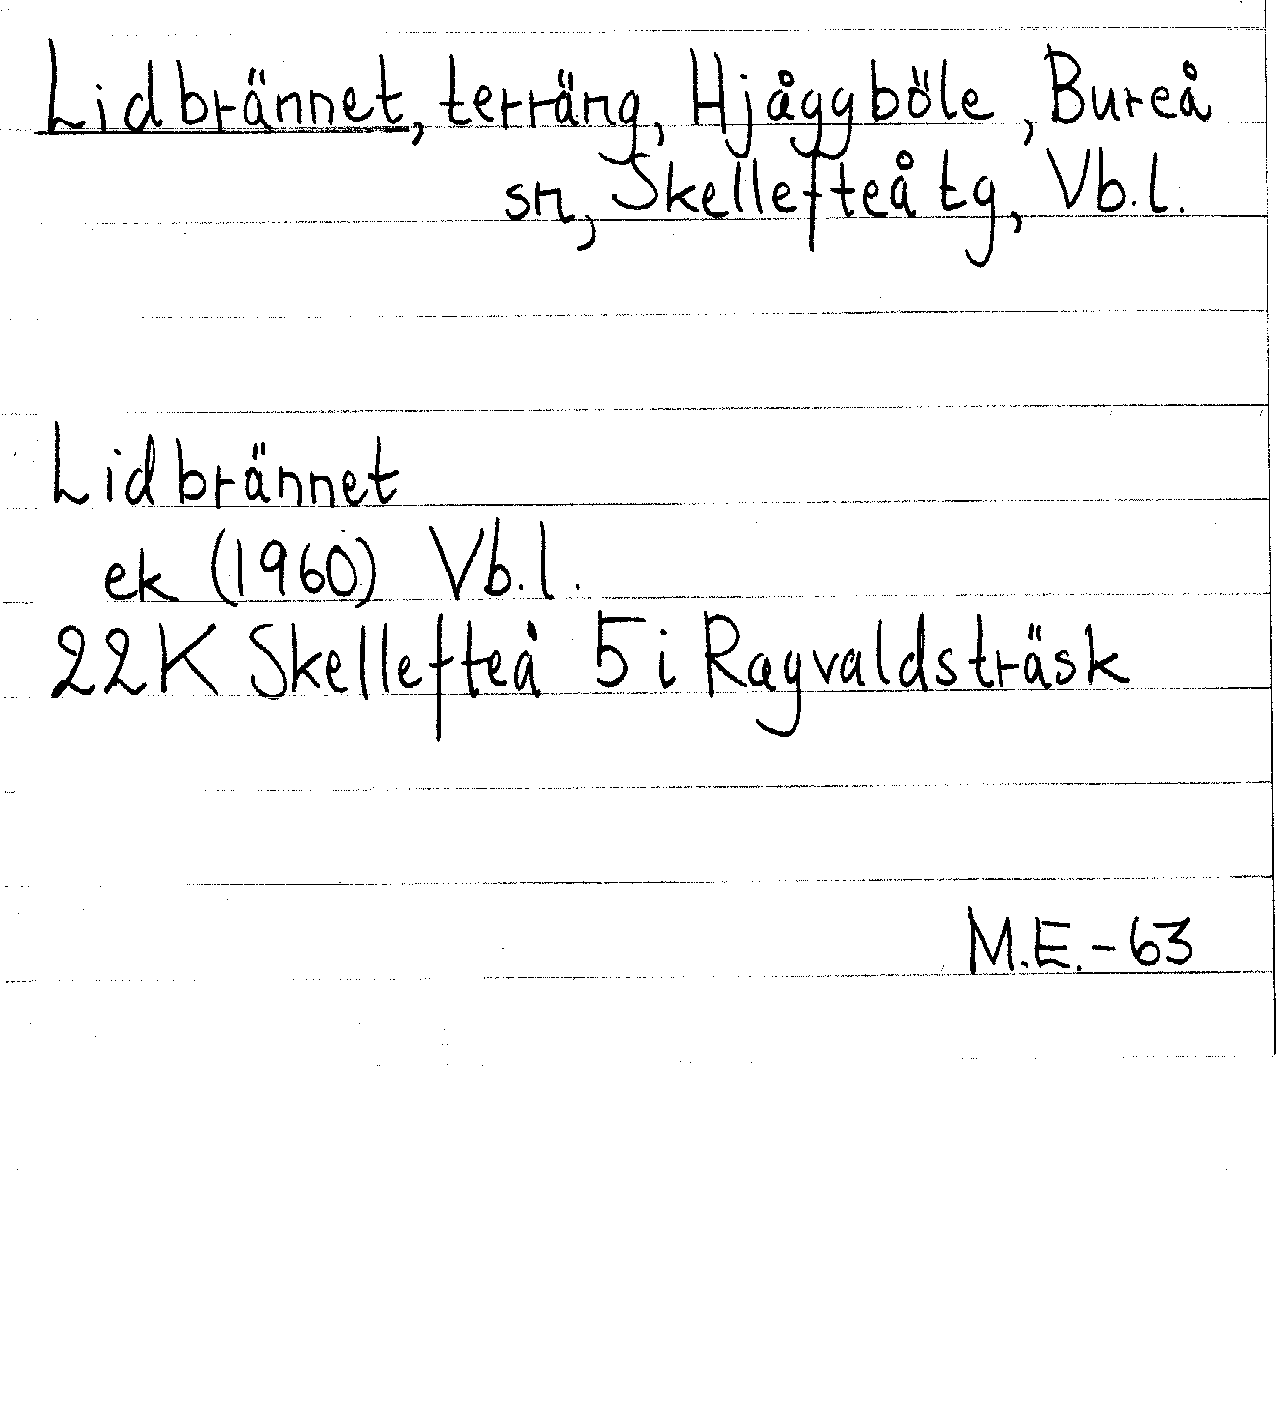 Lidbrännet, terräng, Hjåggböle, Bureå
sn, Skellefteå tg, Vb.l.
Lidbrännet
ek (1960) Vb.l.
22K Skellefteå 5 i Ragvaldsträsk
M.E.-63